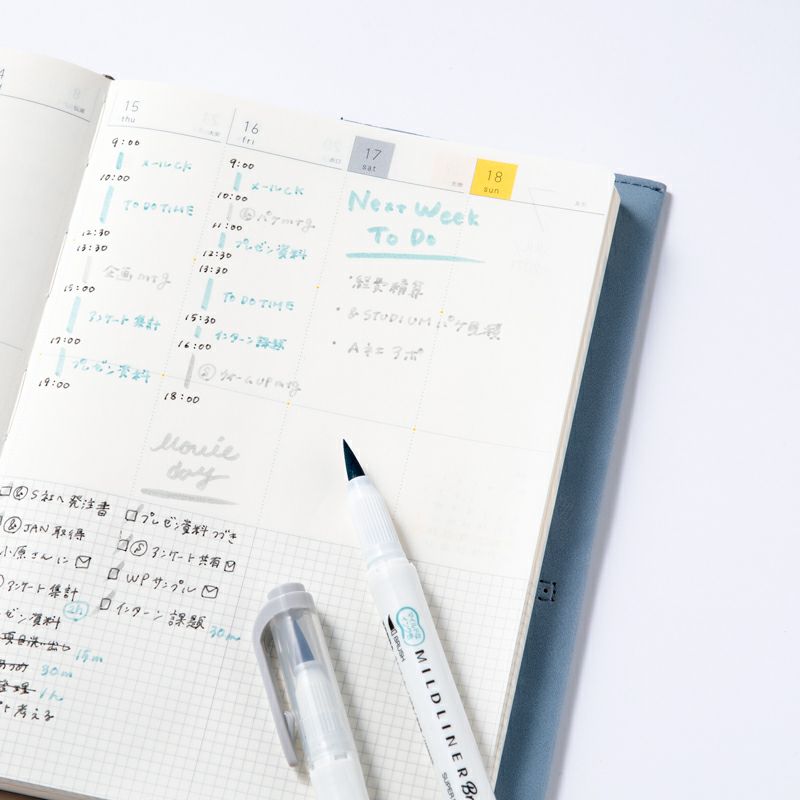 15
thu
9:00
メールCK
10:00
TO DO TIME
12:30
13:30
企画 mtg
15:00
アンケート集計
17:00
プレゼン資料
19:00
16
fri
9:00
メールCK
10:00
パケmtg
11:00
プレゼン資料
12:30
13:30
TO DO TIME
15:30
インターン課題
16:00
ウォームUP mtg
18:00
Movie
day
17
sat
18
sun
Next Week
To Do
・経費精算
・& STUDIUM パケ見積
・A社アポ
S社へ発注書
JAN取得
小原さんに
アンケート集計
ゼン資料 2h
項目洗い出し 15m
30m
整理 1h
考える
プレゼン資料つづき
アンケート共有
WPサンプル
インターン課題 30m
マイルドライナー
BRUSH
MILDLINER Br
SUPER